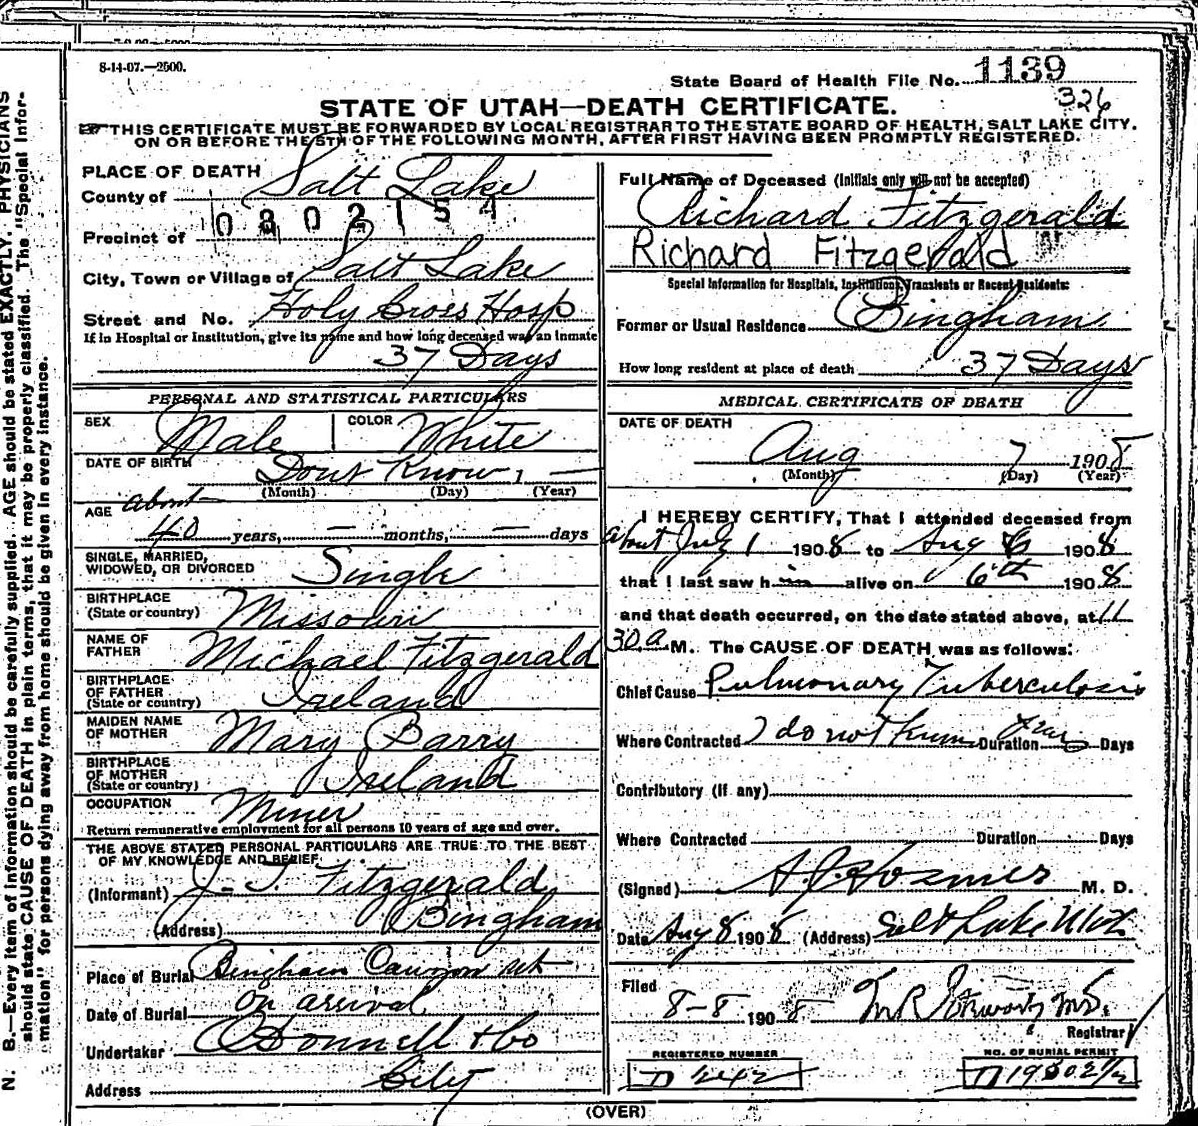 8-14-07.—2500.
State Board of Health File No. 1139
326
STATE OF UTAH—DEATH CERTIFICATE.
THIS CERTIFICATE MUST BE FORWARDED BY LOCAL REGISTRAR TO THE STATE BOARD OF HEALTH, SALT LAKE CITY.
ON OR BEFORE THE 5TH OF THE FOLLOWING MONTH, AFTER FIRST HAVING BEEN PROMPTLY REGISTERED.
PLACE OF DEATH
County of Salt Lake
0802154
Precinct of
City, Town or Village of Salt Lake
Street and No. Holy Cross Hosp
If in Hospital or Institution, give its name and how long deceased was an inmate
37 Days
PERSONAL AND STATISTICAL PARTICULARS
SEX Male COLOR White
DATE OF BIRTH Dont Know, —
(Month) (Day) (Year)
AGE about
40 years, — months, — days
SINGLE, MARRIED,
WIDOWED, OR DIVORCED Single
BIRTHPLACE
(State or country) Missouri
NAME OF
FATHER Michael Fitzgerald
BIRTHPLACE
OF FATHER
(State or country) Ireland
MAIDEN NAME
OF MOTHER Mary Barry
BIRTHPLACE
OF MOTHER
(State or country) Ireland
OCCUPATION Miner
Return remunerative employment for all persons 10 years of age and over.
THE ABOVE STATED PERSONAL PARTICULARS ARE TRUE TO THE BEST
OF MY KNOWLEDGE AND BELIEF.
(Informant) J. T. Fitzgerald
(Address) Bingham
Place of Burial Bingham Canyon Ut
Date of Burial on arrival
Undertaker O'Donnell & Co
Address City
Full Name of Deceased (Initials only will not be accepted)
Richard Fitzgerald
Richard Fitzgerald
Special Information for Hospitals, Institutions, Transients or Recent Residents:
Former or Usual Residence Bingham
How long resident at place of death 37 Days
MEDICAL CERTIFICATE OF DEATH
DATE OF DEATH
Aug 7 1908
(Month) (Day) (Year)
I HEREBY CERTIFY, That I attended deceased from
about July 1 1908 to Aug 6 1908
that I last saw him alive on 6th 1908
and that death occurred, on the date stated above, at 11
30 a M. The CAUSE OF DEATH was as follows:
Chief Cause Pulmonary Tuberculosis
Where Contracted I do not know Duration Days
Contributory (If any)
Where Contracted Duration Days
(Signed) Hosmer M. D.
Date Aug 8 1908 (Address) Salt Lake Utah
Filed
8-8- 1908
Registrar
REGISTERED NUMBER
D 242
NO. OF BURIAL PERMIT
(OVER)
N. B.—Every item of information should be carefully supplied. AGE should be stated EXACTLY. PHYSICIANS
should state CAUSE OF DEATH in plain terms, that it may be properly classified. The "Special Infor-
mation" for persons dying away from home should be given in every instance.